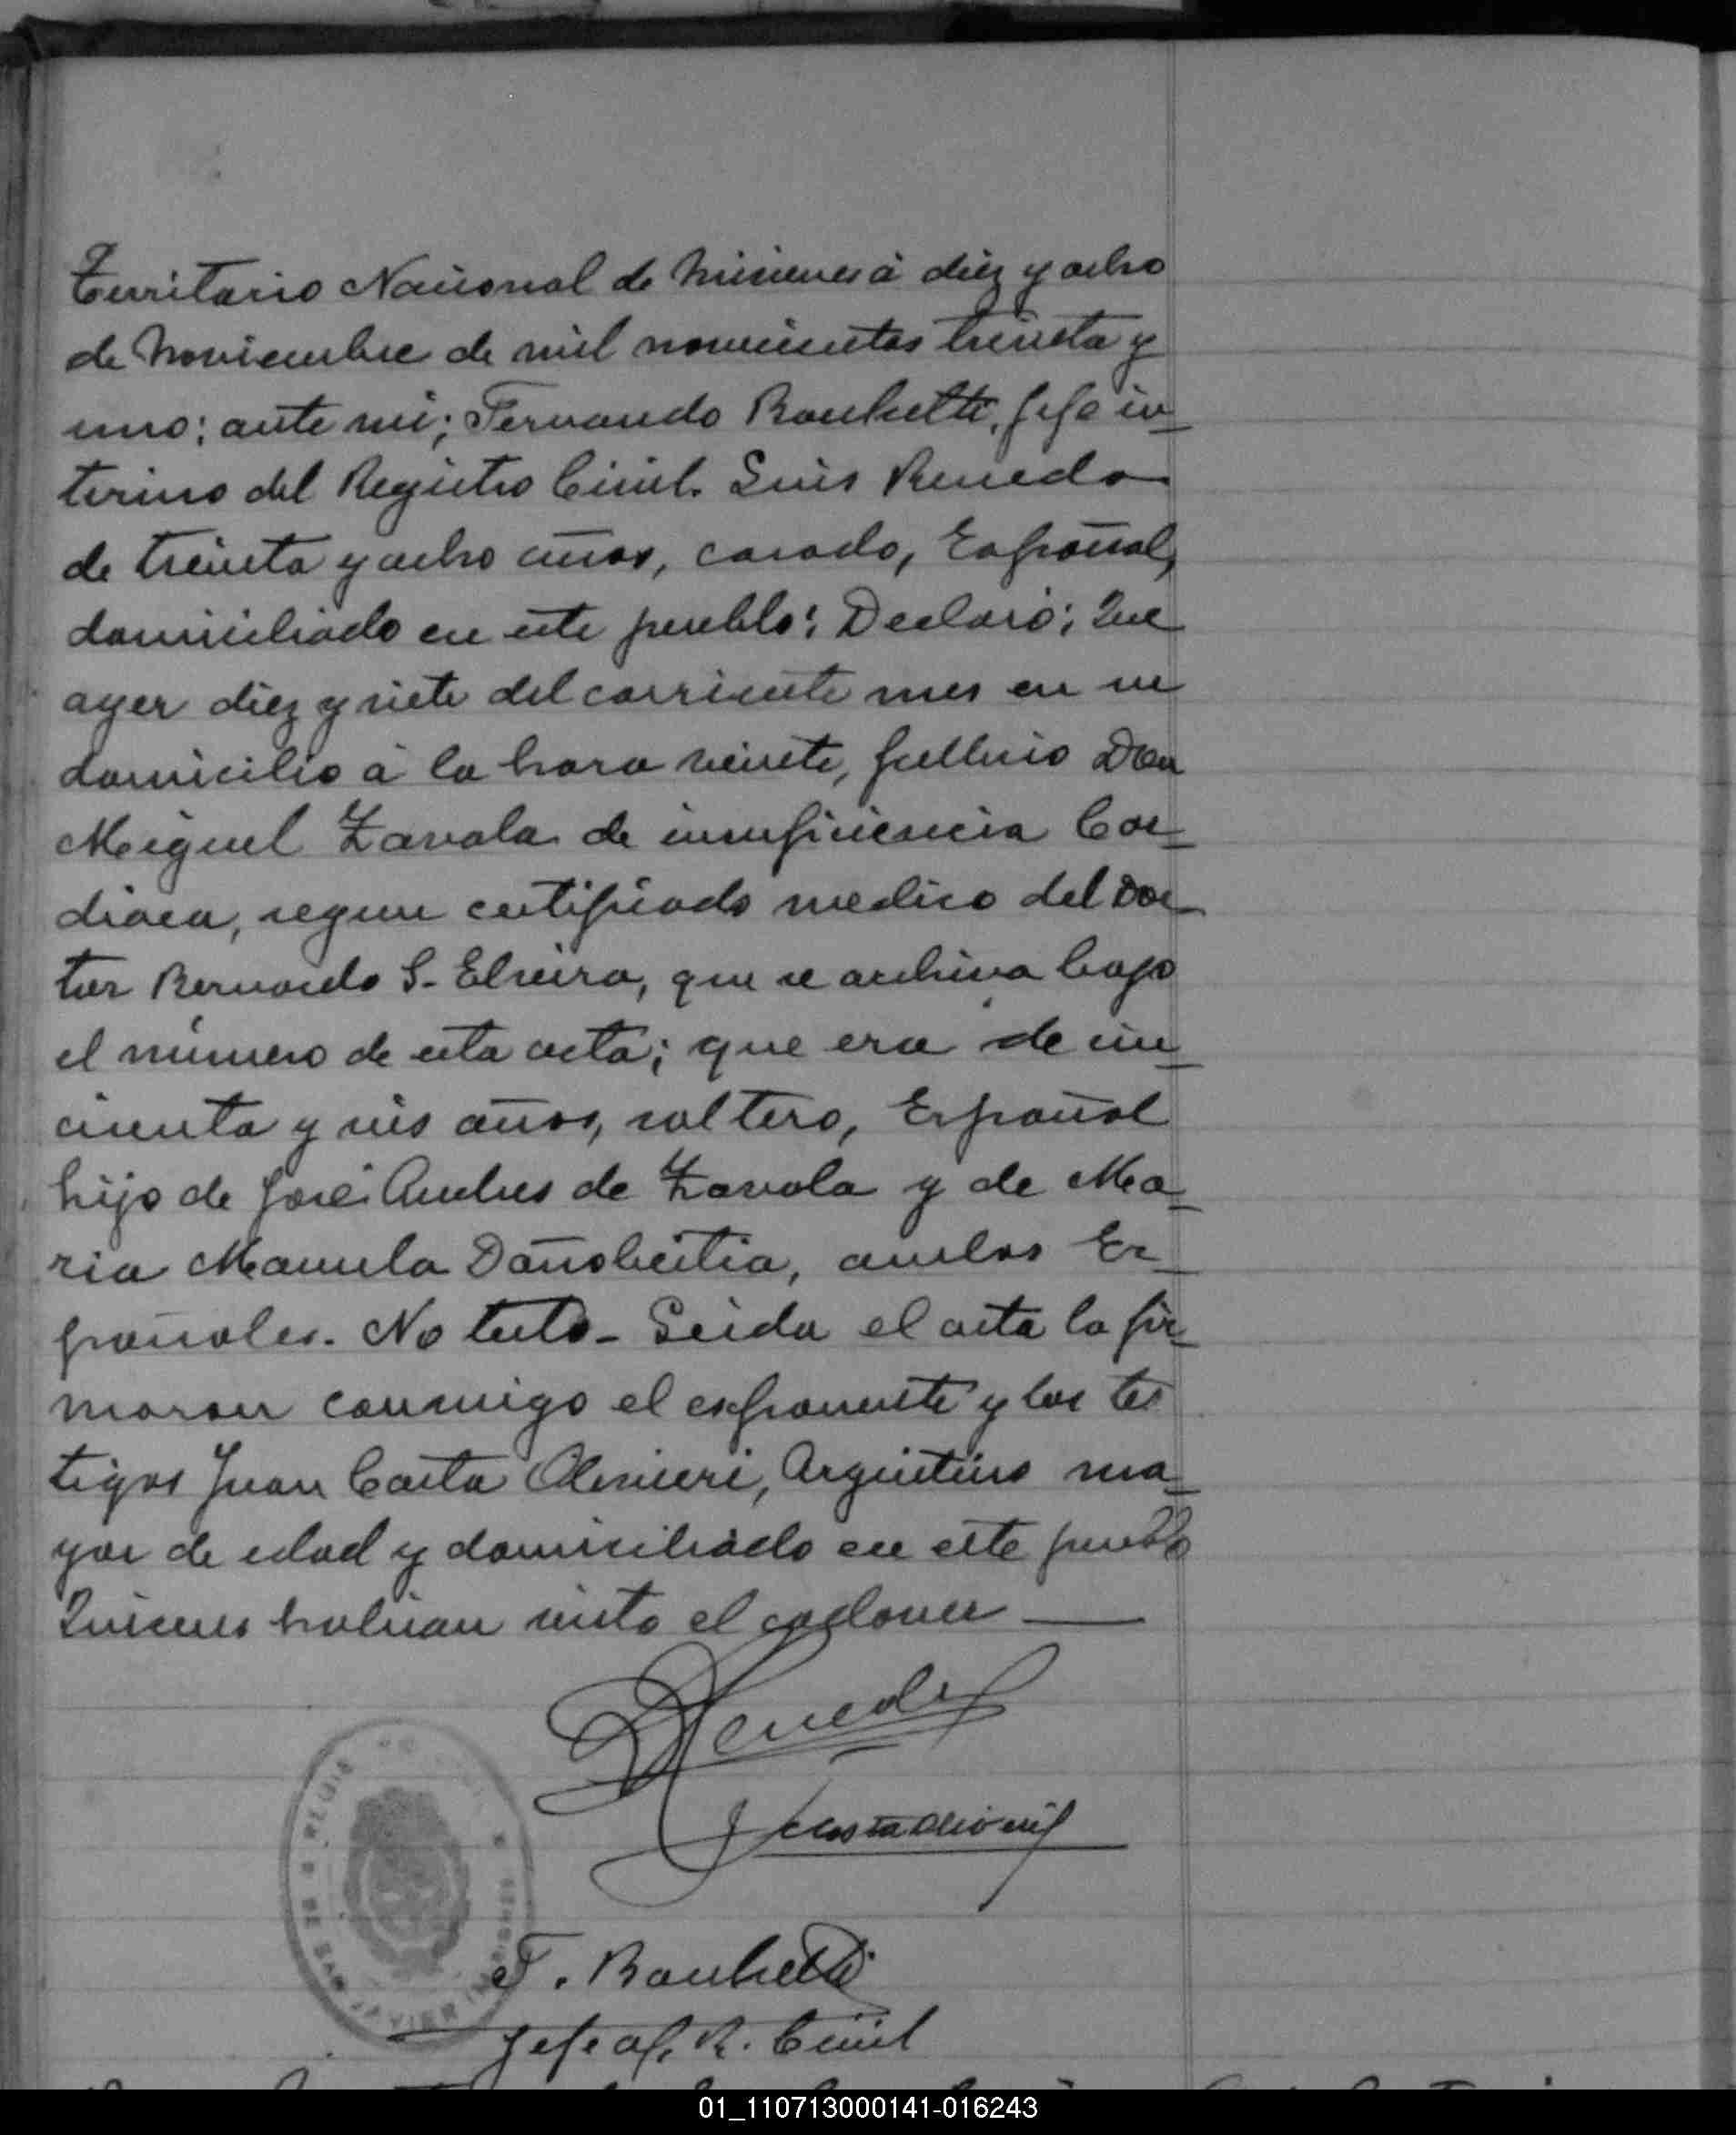 Territorio Nacional de Misiones à diez y ocho
de Noviembre de mil novecientos treinta y
uno; ante mi; Fernando Bouhette, Jefe in_
terino del Registro Civil. Luis Renedo
de treinta y ocho años, casado, Español,
domiciliado en este pueblo; Declaró; Que
ayer diez y siete del corriente mes en su
domicilio à la hora veinte, falleció Don
Miguel Zavala de insuficiencia Car_
diaca, segun certificado medico del Doc_
tor Bernardo S. Elseira, que se archiva bajo
el número de esta acta; que era de cin_
cuenta y seis años, soltero, Español
hijo de José Andres de Zavala y de Ma_
ria Manuela Dañobeitia, ambos Es_
pañoles. No testo - Leida el acta la fir_
maron conmigo el exponente y los tes
tigos Juan Costa Olivieri, Argentino ma_
yor de edad y domiciliado en este pueblo
Quienes habian visto el cadaver
Renedo
J Costa Olivieri
F. Bouhette
Jefe of. R. Civil
DE SAN JAVIER
01_110713000141-016243